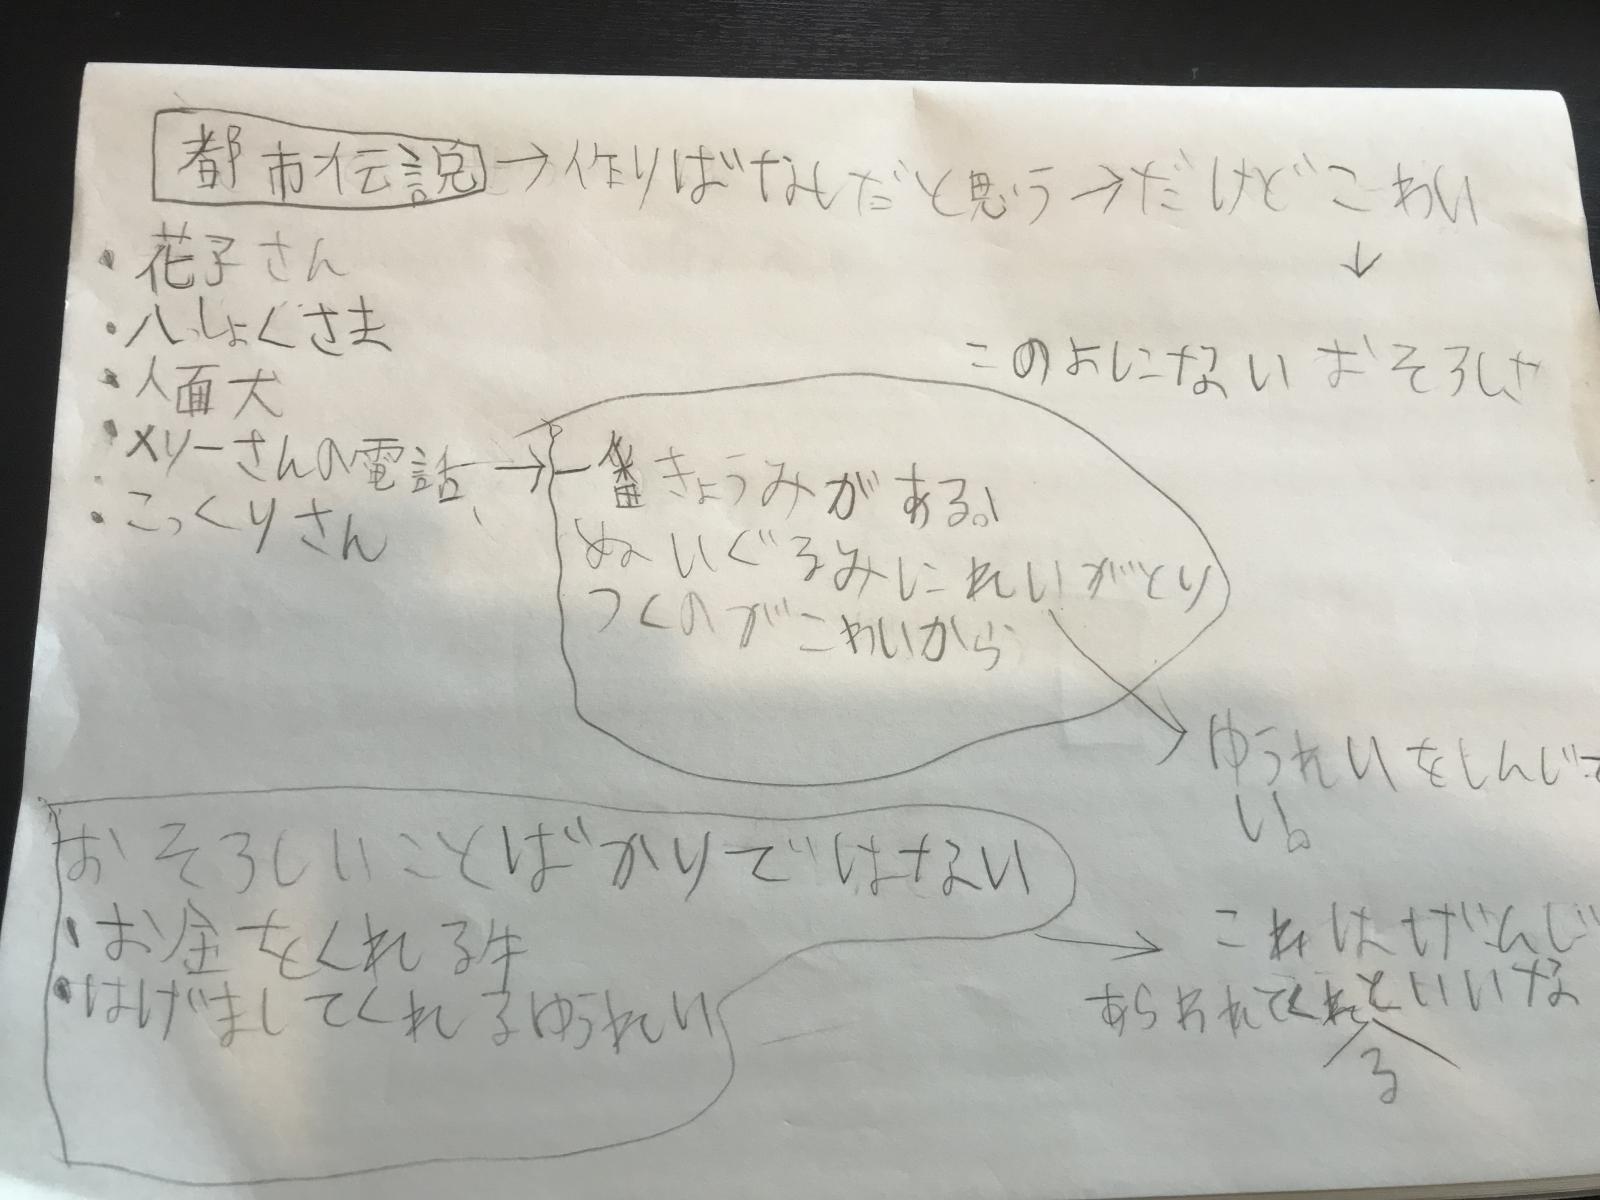 都市伝説→作りばなしだと思う→だけどこわい
↓
・花子さん
・八しょくさま
・人面犬
・メリーさんの電話→
・こっくりさん
このよにないおそろしさ
一番きょうみがある。
ぬいぐるみにれいがとり
つくのがこわいから
→ゆうれいをしんじ
い。
おそろしいことばかりではない
・お金をくれる牛
・はげましてくれるゆうれい
→これはげんじ
あらわれてくれるといいな